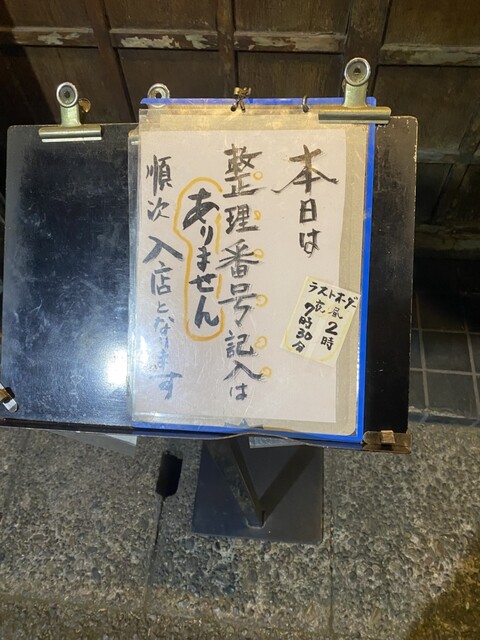 本日は
整理番号記入は
ありません
順次入店となります
ラストオーダー
昼 2時
夜 7時30分